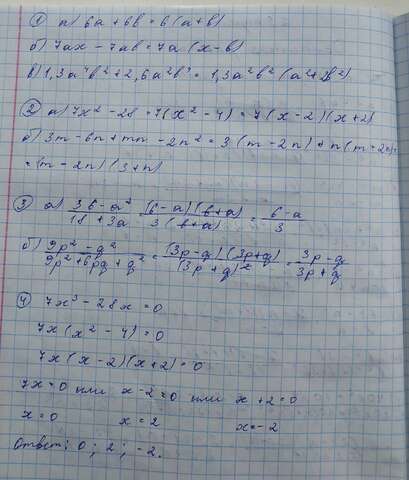 ① а) 6a + 6b = 6(a+b)
б) 7ax - 7ab = 7a(x-b)
в) 1,3a⁴b² + 2,6a²b³ = 1,3a²b²(a²+2b²)
② а) 7x² - 28 = 7(x² - 4) = 7(x-2)(x+2)
б) 3m - 6n + mn - 2n² = 3(m-2n) + n(m-2n) =
= (m-2n)(3+n)
③ а) 36-a² / 18+3a = (6-a)(6+a) / 3(6+a) = 6-a / 3
б) 9p² - q² / 9p²+6pq+q² = (3p-q)(3p+q) / (3p+q)² = 3p-q / 3p+q
④ 7x³ - 28x = 0
7x(x² - 4) = 0
7x(x-2)(x+2) = 0
7x=0 или x-2=0 или x+2=0
x=0 x=2 x=-2
Ответ: 0; 2; -2.